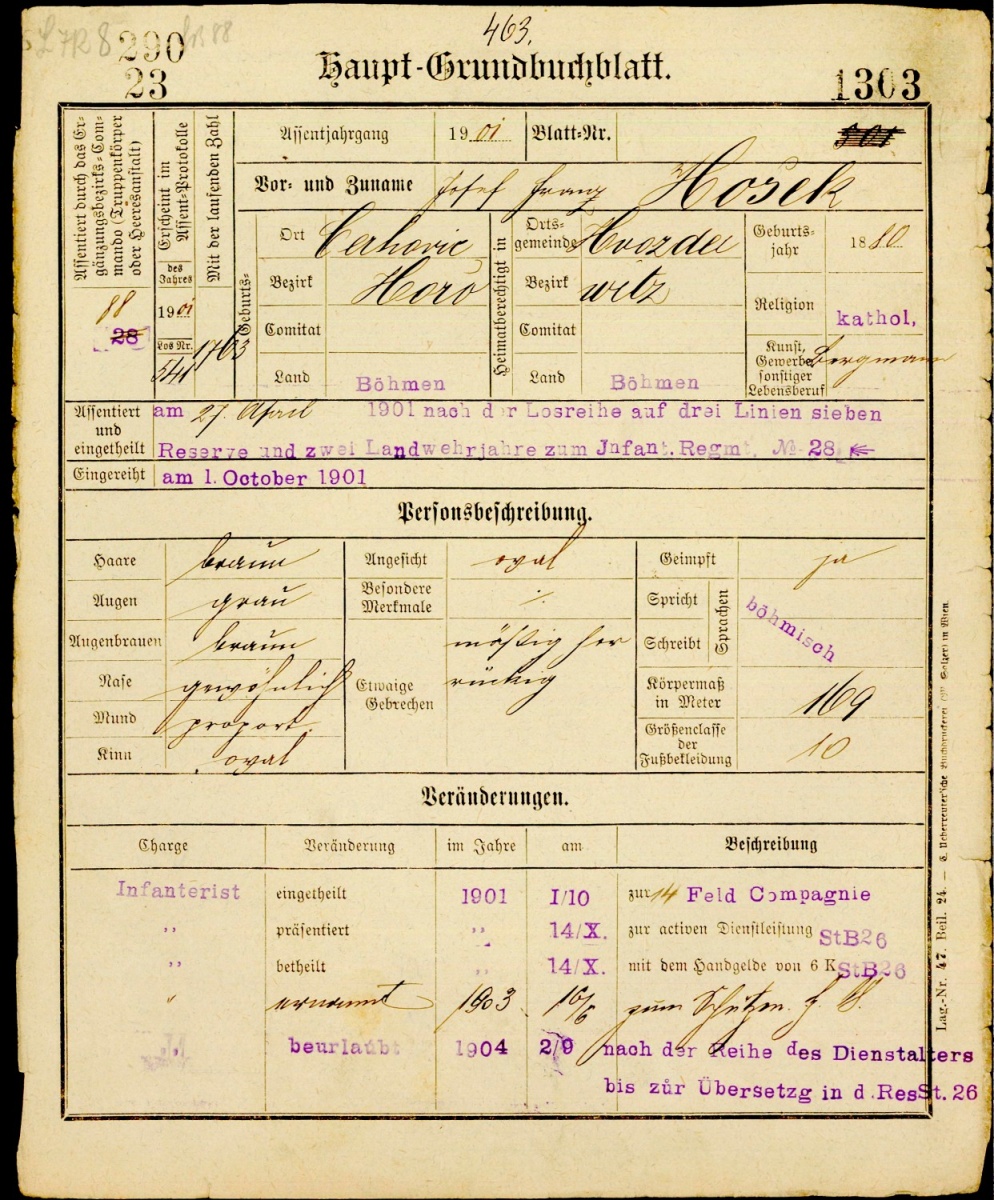 463.
290
23
Haupt-Grundbuchblatt.
1303
Assentiert durch das Er-
gänzungsbezirks-Com-
mando (Truppenkörper
oder Heeresanstalt)
88
28
Erscheint im
Assent-Protokolle
des Jahres
1901
Los Nr.
541
Mit der laufenden Zahl
1763
Assentjahrgang 1901 Blatt-Nr. 301
Vor- und Zuname Josef Franz Hošek
Geburts-
Ort Cerhovic
Bezirk Horo
Comitat
Land Böhmen
Heimatberechtigt in
Orts-
gemeinde Hvozde
Bezirk witz
Comitat
Land Böhmen
Geburts-
jahr 1880
Religion kathol,
Kunst,
Gewerbe
sonstiger
Lebensberuf Bergmann
Assentiert
und
eingetheilt
am 27. April 1901 nach der Losreihe auf drei Linien sieben
Reserve und zwei Landwehrjahre zum Jnfant. Regmt. № 28
Eingereiht am 1. October 1901
Personsbeschreibung.
Haare braun
Augen grau
Augenbrauen braun
Nase gewöhnlich
Mund proport.
Kinn oval
Angesicht oval
Besondere
Merkmale ./.
Etwaige
Gebrechen
mäßig
rückig
Geimpft ja
Spricht
Schreibt
Sprachen
böhmisch
Körpermaß
in Meter 169
Größenclasse
der
Fußbekleidung 10
Veränderungen.
Charge Veränderung im Jahre am Beschreibung
Infanterist eingetheilt 1901 1/10 zur 14 Feld Compagnie
,, präsentiert ,, 14/X. zur activen Dienstleistung StB26
,, betheilt ,, 14/X. mit dem Handgelde von 6 K StB26
" ernannt 1903 16/6 zum Schützen
,, beurlaubt 1904 2/9 nach der Reihe des Dienstalters
bis zur Übersetzg in d. Res St. 26
Lag.-Nr. 47. Beil. 24. — C. Ueberreuter'sche Buchdruckerei (M. Salzer) in Wien.